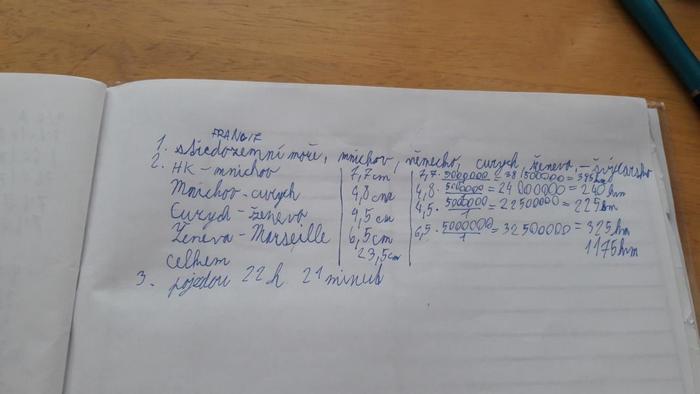 FRANCIE
1. středozemní moře, mnichov, německo, curych, ženeva, - švýcarsko
2. HK - mnichov 7,7cm 7,7 · 5000000 = 38 500000 = 385 km
Mnichov - curych 4,8 cm 4,8 · 5000000 / 1 = 24 000000 = 240 km
Curych - ženeva 4,5 cm 4,5 · 5000000 / 1 = 22500000 = 225 km
Ženeva - Marseille 6,5cm 6,5 · 5000000 / 1 = 32500000 = 325 km
celkem 23,5cm 1175km
3. pojedou 22 h 21 minut